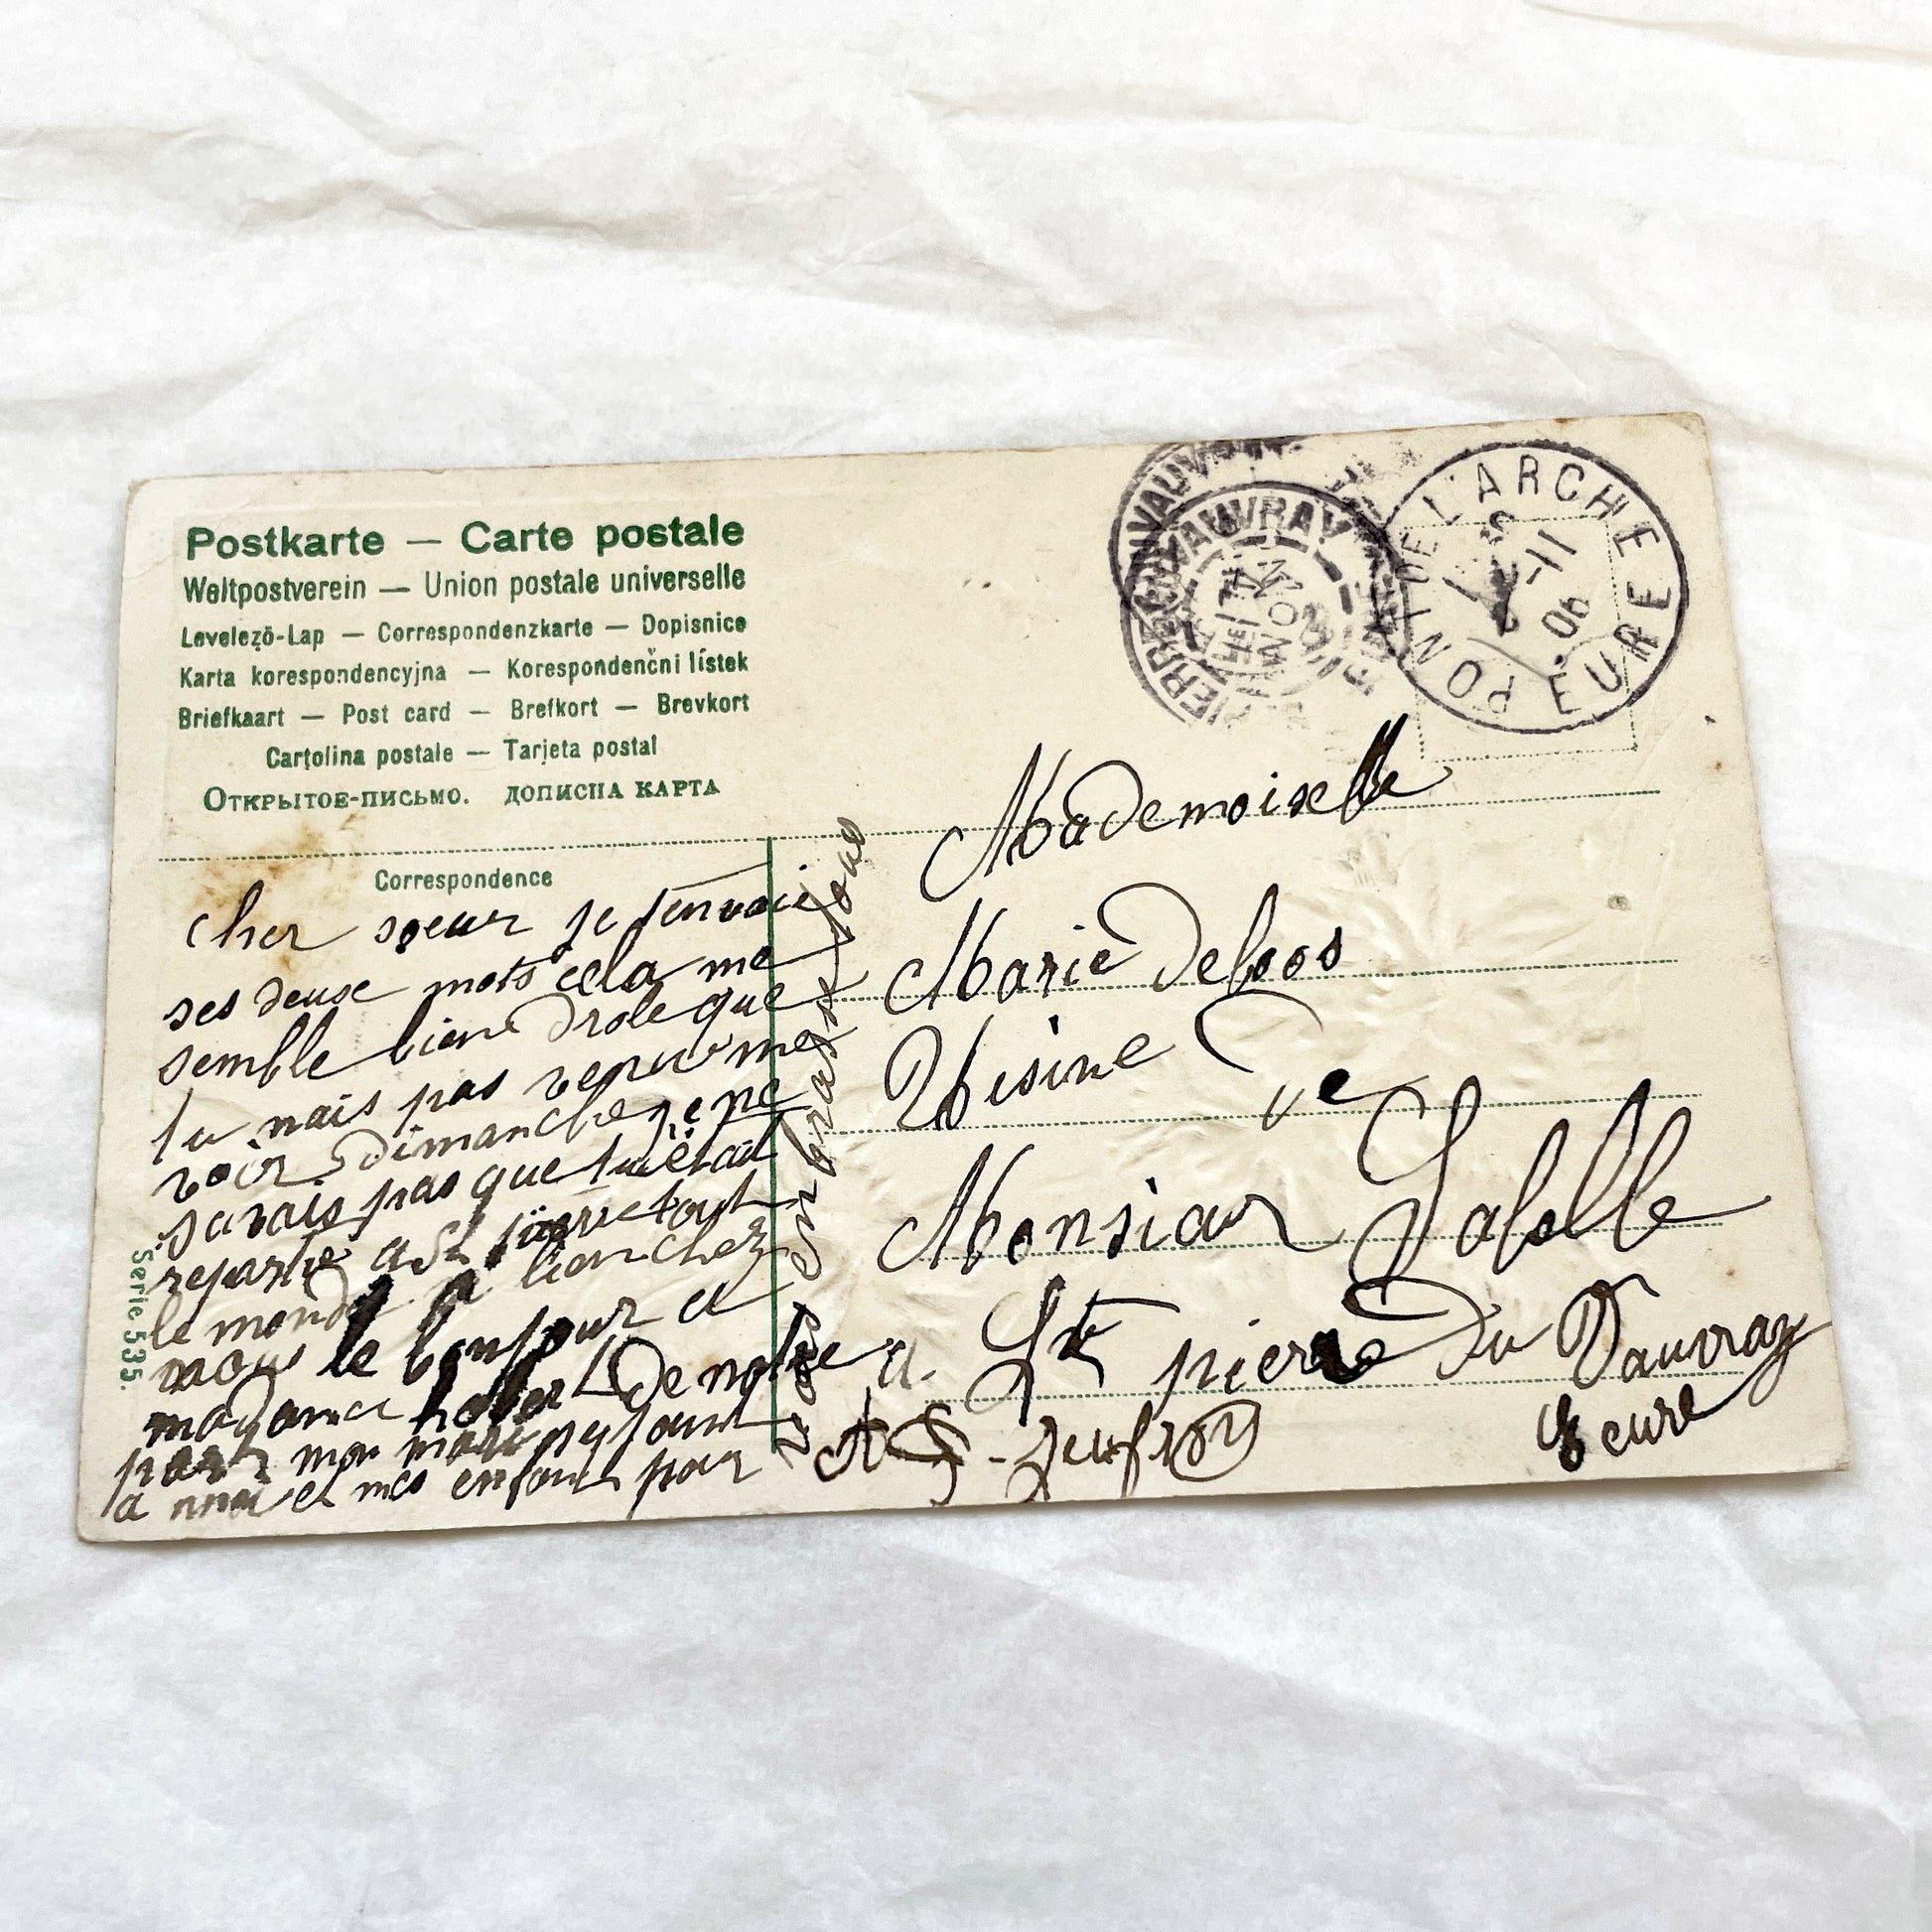 Postkarte — Carte postale
Weltpostverein — Union postale universelle
Levelező-Lap — Correspondenzkarte — Dopisnice
Karta korespondencyjna — Korespondenční lístek
Briefkaart — Post card — Brefkort — Brevkort
Cartolina postale — Tarjeta postal
Открытое-письмо. дописна карта
PONT DE L'ARCHE
11
06
EURE
VAUVRAY
Correspondence
cher soeur je tenvoie
ses deuse mots cela me
semble bien drole que
tu nais pas venu me
voir dimanche je ne
savais pas que tu était
repartie a St pierre tout
le monde a lion chez
nous le bonjour a
madame hober De notre
part mon mari se joint
a moi et mes enfant pour
vous embrasse tous
Serie 535.
Mademoiselle
Marie Deloos
Usine
De
Monsieur Labelle
a. St pierre Du Vauvray
Eeure